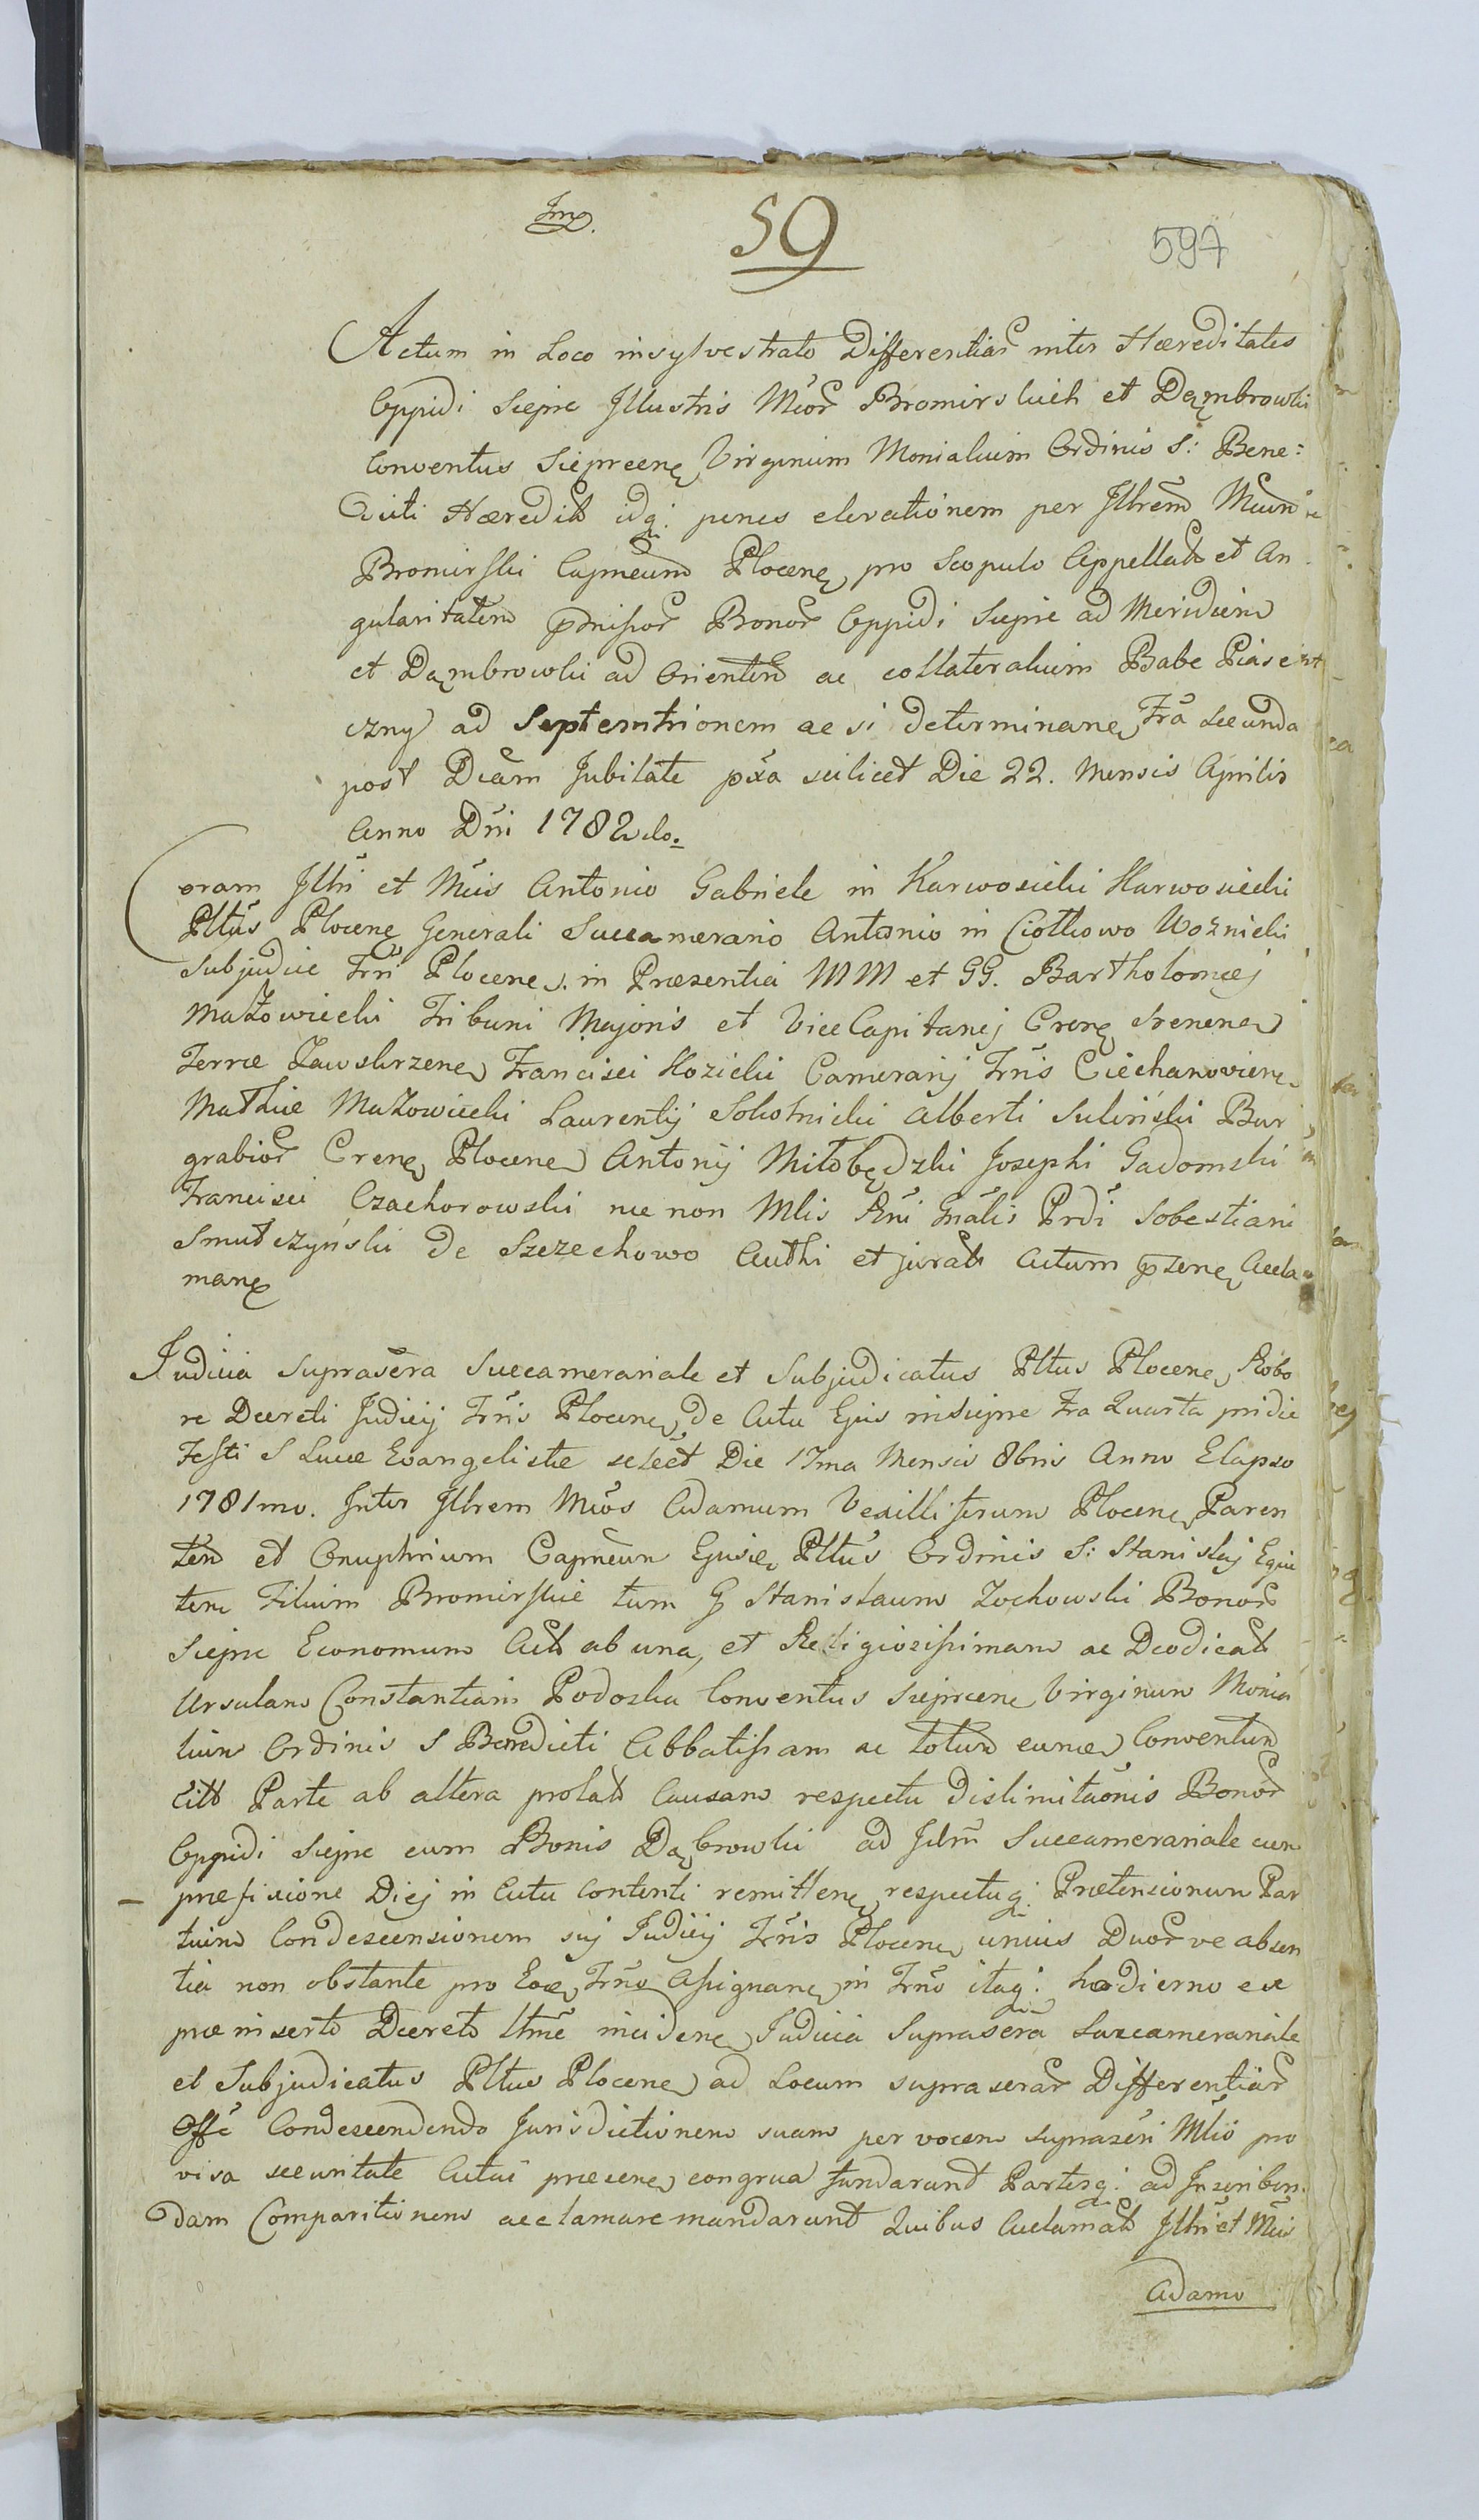 Imp.
59
597
Actum in Loco insylvestrato Differentiar inter Hæreditates
Oppidi Sieprc Illustris Mcor Bromirskich et Dąmbrowki
Conventus Sieprcen Virginum Monialium Ordinis S: Bene:
dicti Hæredit idq: penes elevationem per Illrem Mcum
Bromirski Capneum Plocen pro Scopulo Appellat et An
gularitatem pmissor Bonor Oppidi Sieprc ad Meridiem
et Dąmbrowki ad Orientem ac collateralium Babc Piase
czny ad Septemtrionem ac si determinan Fra Secunda
post Dcam Jubilate pxa scilicet Die 22. Mensis Aprilis
Anno Dni 1782do.
Coram Illri et Mcis Antonio Gabriele in Karwosieki Karwosiecki
Pltus Plocen Generali Succamerario Antonio in Ciołkowo Woźnicki
Subjudice Trri Plocen. in Præsentia MM et GG. Bartholomæj
Mazowiecki Tribuni Majoris et ViceCapitanej Cren Srenen
Terræ Zawskrzen Francisci Kozicki Camerarij Trris Ciechanovien
Mathiæ Mazowiecki Laurentij Sokolnicki Alberti Suliński Bur
grabior Cren Plocen Antonij Miłobędzki Josephi Gadomski
Francisci Czachorowski nec non Mlis Rni Gnalis Prdi Sobestiani
Smutczyński de Szczechowo Authi et jurat Actum pzen Accla
man
Judicia suprascra Succamerariale et Subjudicatus Pltus Plocen Robo
re Decreti Judicij Trris Plocen de Actu Ejus in Sieprc Fra Quarta pridie
Festi S Lucæ Evangelistæ scilcet Die 17ma Mensis 8bris Anno Elapso
1781mo. Inter Illrem Mcos Adamum Vexilliferum Plocen Paren
tem et Onuphrium Capneum Ejusd Pltus Ordinis S: Stanislaj Equi
tem Filium Bromirskie tum G Stanislaum Zochowski Bonor
Sieprc Economum Act ab una, et Religiosissimam ac Deodicat
Ursulam Constantiam Podoska Conventus Sieprcen Virginum Monia
lium Ordinis S Benedicti Abbatissam ac totum eund Conventum
Citt Parte ab altera prolat Causam respectu Dislimitaonis Bonor
Oppidi Sieprc cum Bonis Dąbrowki ad Jdm Succamerariale cum
præfixione Diej in Actu Contenti remitten respectuq: Prætensionum Par
tium Condescensionem suj Judicij Trris Plocen unius Duor ve absen
tia non obstante pro Eod Trno Assignan in Trno itaq: hodierno ex
præinserto Decreto ltme inciden Judicia Suprascra Succamerariale
et Subjudicatus Pltus Plocen ad Locum suprascrar Differentiar
Offe Condescendendo Jurisdictionem suam per vocem suprascri Mlis pro
visa securitate Actui præsen congrua fundarunt Partesq: ad Inscriben
dam Comparitionem acclamare mandarunt Quibus Acclamat Illri et Mcis
Adamo